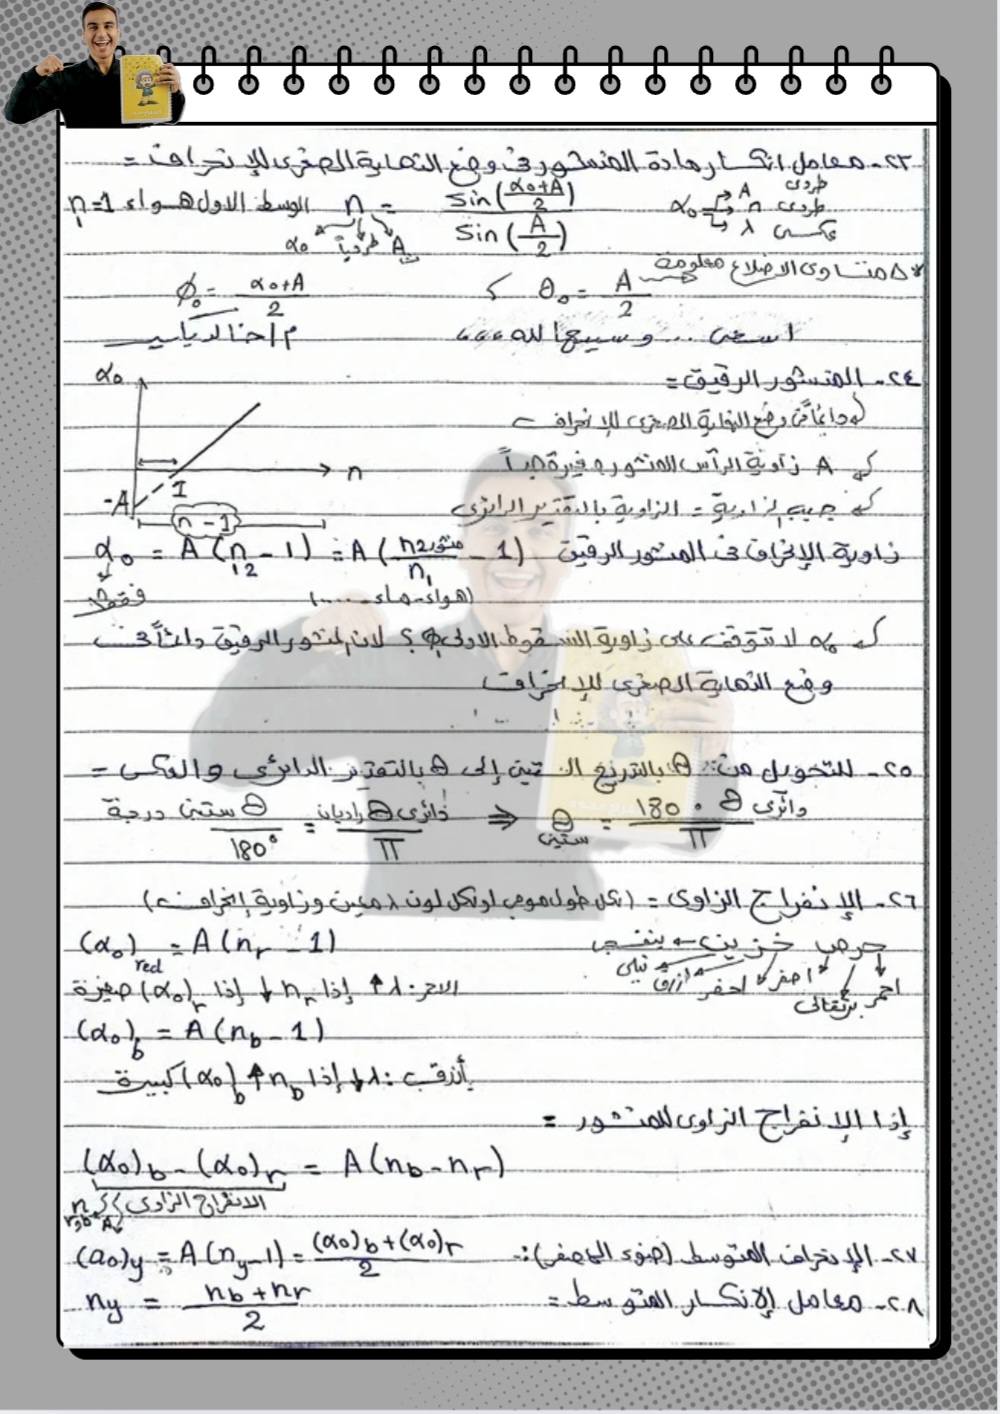 ٢٣- معامل انكسار مادة المنشور في وضع النهاية الصغرى للإنحراف =
n = sin((α₀+A)/2) / sin(A/2) الوسط الاول هواء n₁=1
α₀ → A طردى
→ n طردى
→ λ عكسى
α₀ طردياً A
* Δ متساوى الاضلاع معلومة
θ₀ = A/2 , ϕ₀ = (α₀+A)/2
اسعى ... وسيبها لله ،،،، م/حنا الدياسير
٢٤- المنشور الرقيق =
دائماً في وضع النهاية الصغرى للإنحراف
A زاوية الرأس المنشور صغيرة جداً
جيب الزاوية = الزاوية بالتقدير الدائرى
α₀
n
1
-A
(n - 1)
زاوية الإنحراف في المنشور الرقيق α₀ = A(n - 1) = A(n₂ منشور / n₁ - 1)
1 2
(هواء - ماء - ....)
فقط
α₀ لا تتوقف على زاوية السقوط الاولى ϕ₁؟ لان المنشور الرقيق دائماً في
وضع النهاية الصغرى للإنحراف
٢٥- للتحويل من θ بالتدريج الستينى إلى θ بالتقدير الدائرى والعكس =
θ ستينى درجة / 180° = θ دائرى راديان / π ⇒ θ ستينى = 180° θ دائرى / π
٢٦- الإنفراج الزاوى = (لكل طول موجى او لكل لون λ معين وزاوية إنحراف)
(α₀)red = A(nr - 1)
حرص خزين ← بنفسجى
احمر برتقالى اصفر اخضر أزرق نيلى
الاحمر: λ ↑ إذا nr ↓ إذا (α₀)r صغيرة
(α₀)b = A(nb - 1)
أزرق: λ ↓ إذا nb ↑ (α₀)b كبيرة
إذا الإنفراج الزاوى للمنشور =
(α₀)b - (α₀)r = A(nb - nr)
الانفراج الزاوى
٢٧- الإنحراف المتوسط (ضوء اصفر): (α₀)y = A(ny - 1) = ((α₀)b + (α₀)r) / 2
٢٨- معامل الإنكسار المتوسط = ny = (nb + nr) / 2